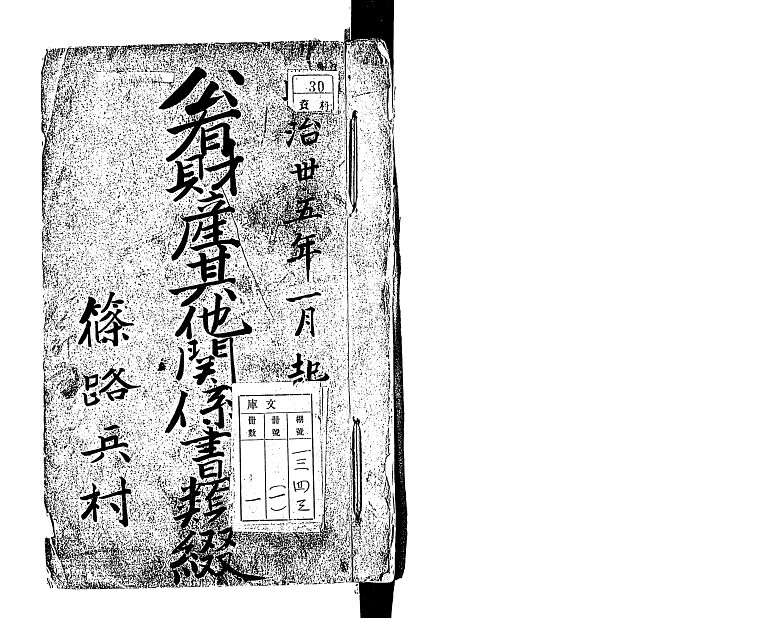 30
資料
治卅五年一月起
公有財産其他関係書類綴
篠路兵村
文庫
棚號 一三四三
冊號 (一)
冊数 一